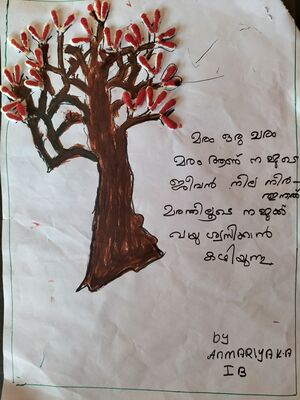 മരം ഒരു വരം
മരം ആണ് നമ്മുടെ
ജീവൻ നില നിർ-
ത്തുന്നത്
മരത്തിലൂടെ നമുക്ക്
വയു ശ്വസിക്കാൻ
കഴിയുന്നു
by
ANMARIYA K.A
I B